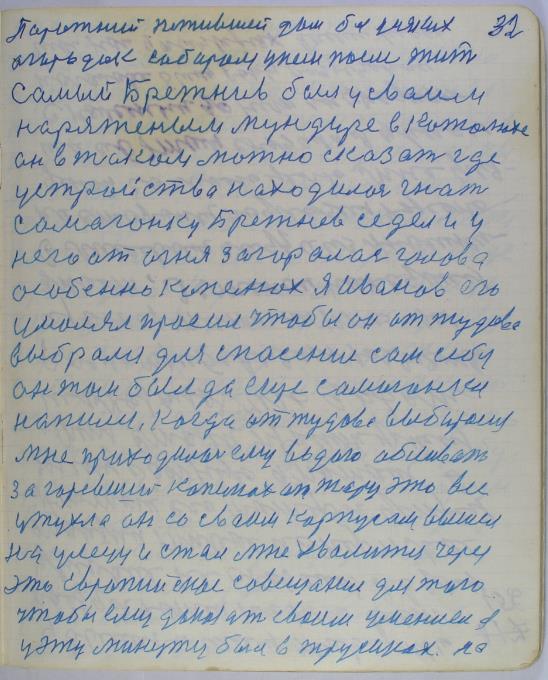 32
дом
огородок собирал
самый Брежнев был у своем
наряженым мундире в
он в таком можно сказат где
устройства находился гнат
самагонку Брежнев седел и у
него от огня загоралас голова
особенно Я Иванов его
умолял просил чтобы он оттудова
выбрался для спасение сам себя
он там был да еще самагонки
напился, когда оттудова выбирался
мне приходилос ему водого обливат
загоревший от жару это все
утухла он со своим корпусам вышел
на улецу и стал мне хвалится через
это европийское совещание для того
чтобы ему доказат своим умением я
у эту минуту был в трусиках. на